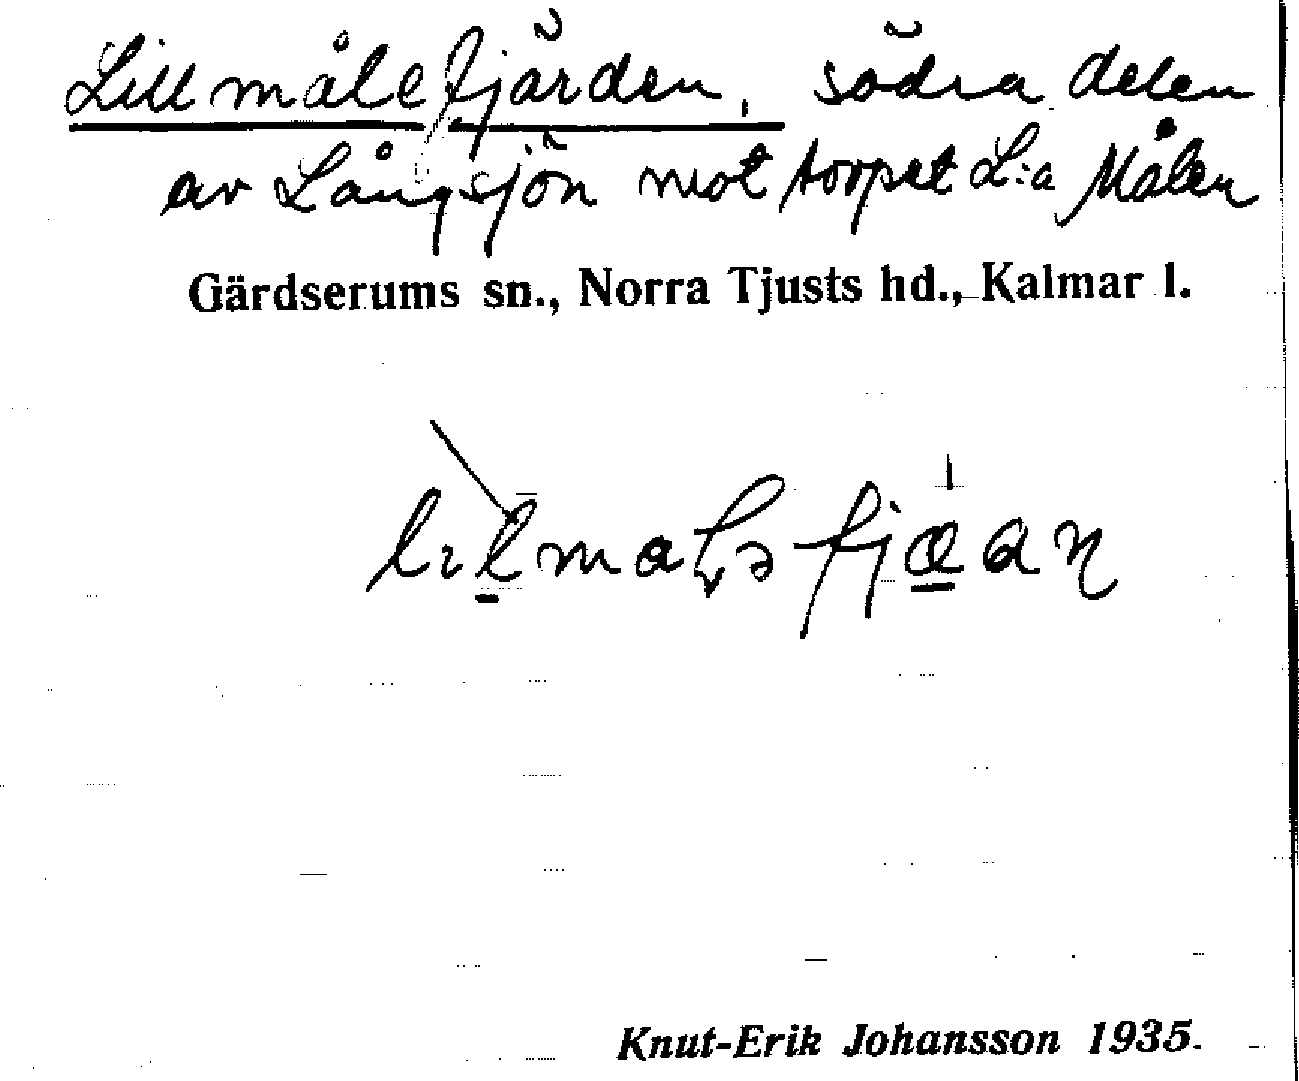 Lillmålefjärden, södra delen
av Långsjön mot torpet L:a Målen
Gärdserums sn., Norra Tjusts hd., Kalmar l.
Knut-Erik Johansson 1935.